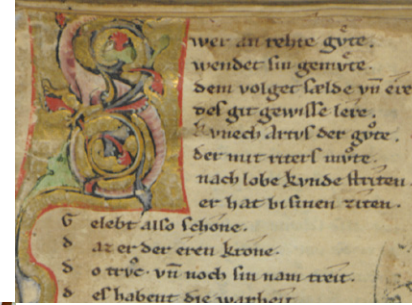 Swer an rehte gv̊te.
wendet sin gemv̊te.
dem volget sælde vn̄ ere
des git gewisse lere.
kvnech Artvs der gv̊te.
der mit riters mv̊te.
nach lobe kvnde striten.
er hat bi sinen ziten.
G elebt also schone.
d az er der eren krone.
d o trv̊c. vn̄ noch sin nam treit.
d es habent die warheit